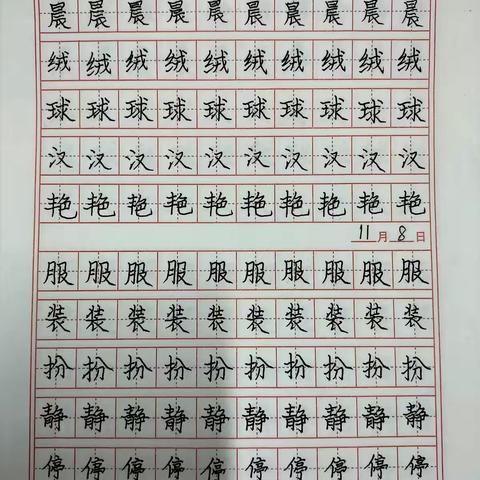 晨晨晨晨晨晨晨晨晨晨
绒绒绒绒绒绒绒绒绒绒
球球球球球球球球球球
汉汉汉汉汉汉汉汉汉汉
艳艳艳艳艳艳艳艳艳艳
11月8日
服服服服服服服服服服
装装装装装装装装装装
扮扮扮扮扮扮扮扮扮扮
静静静静静静静静静静
停停停停停停停停停停